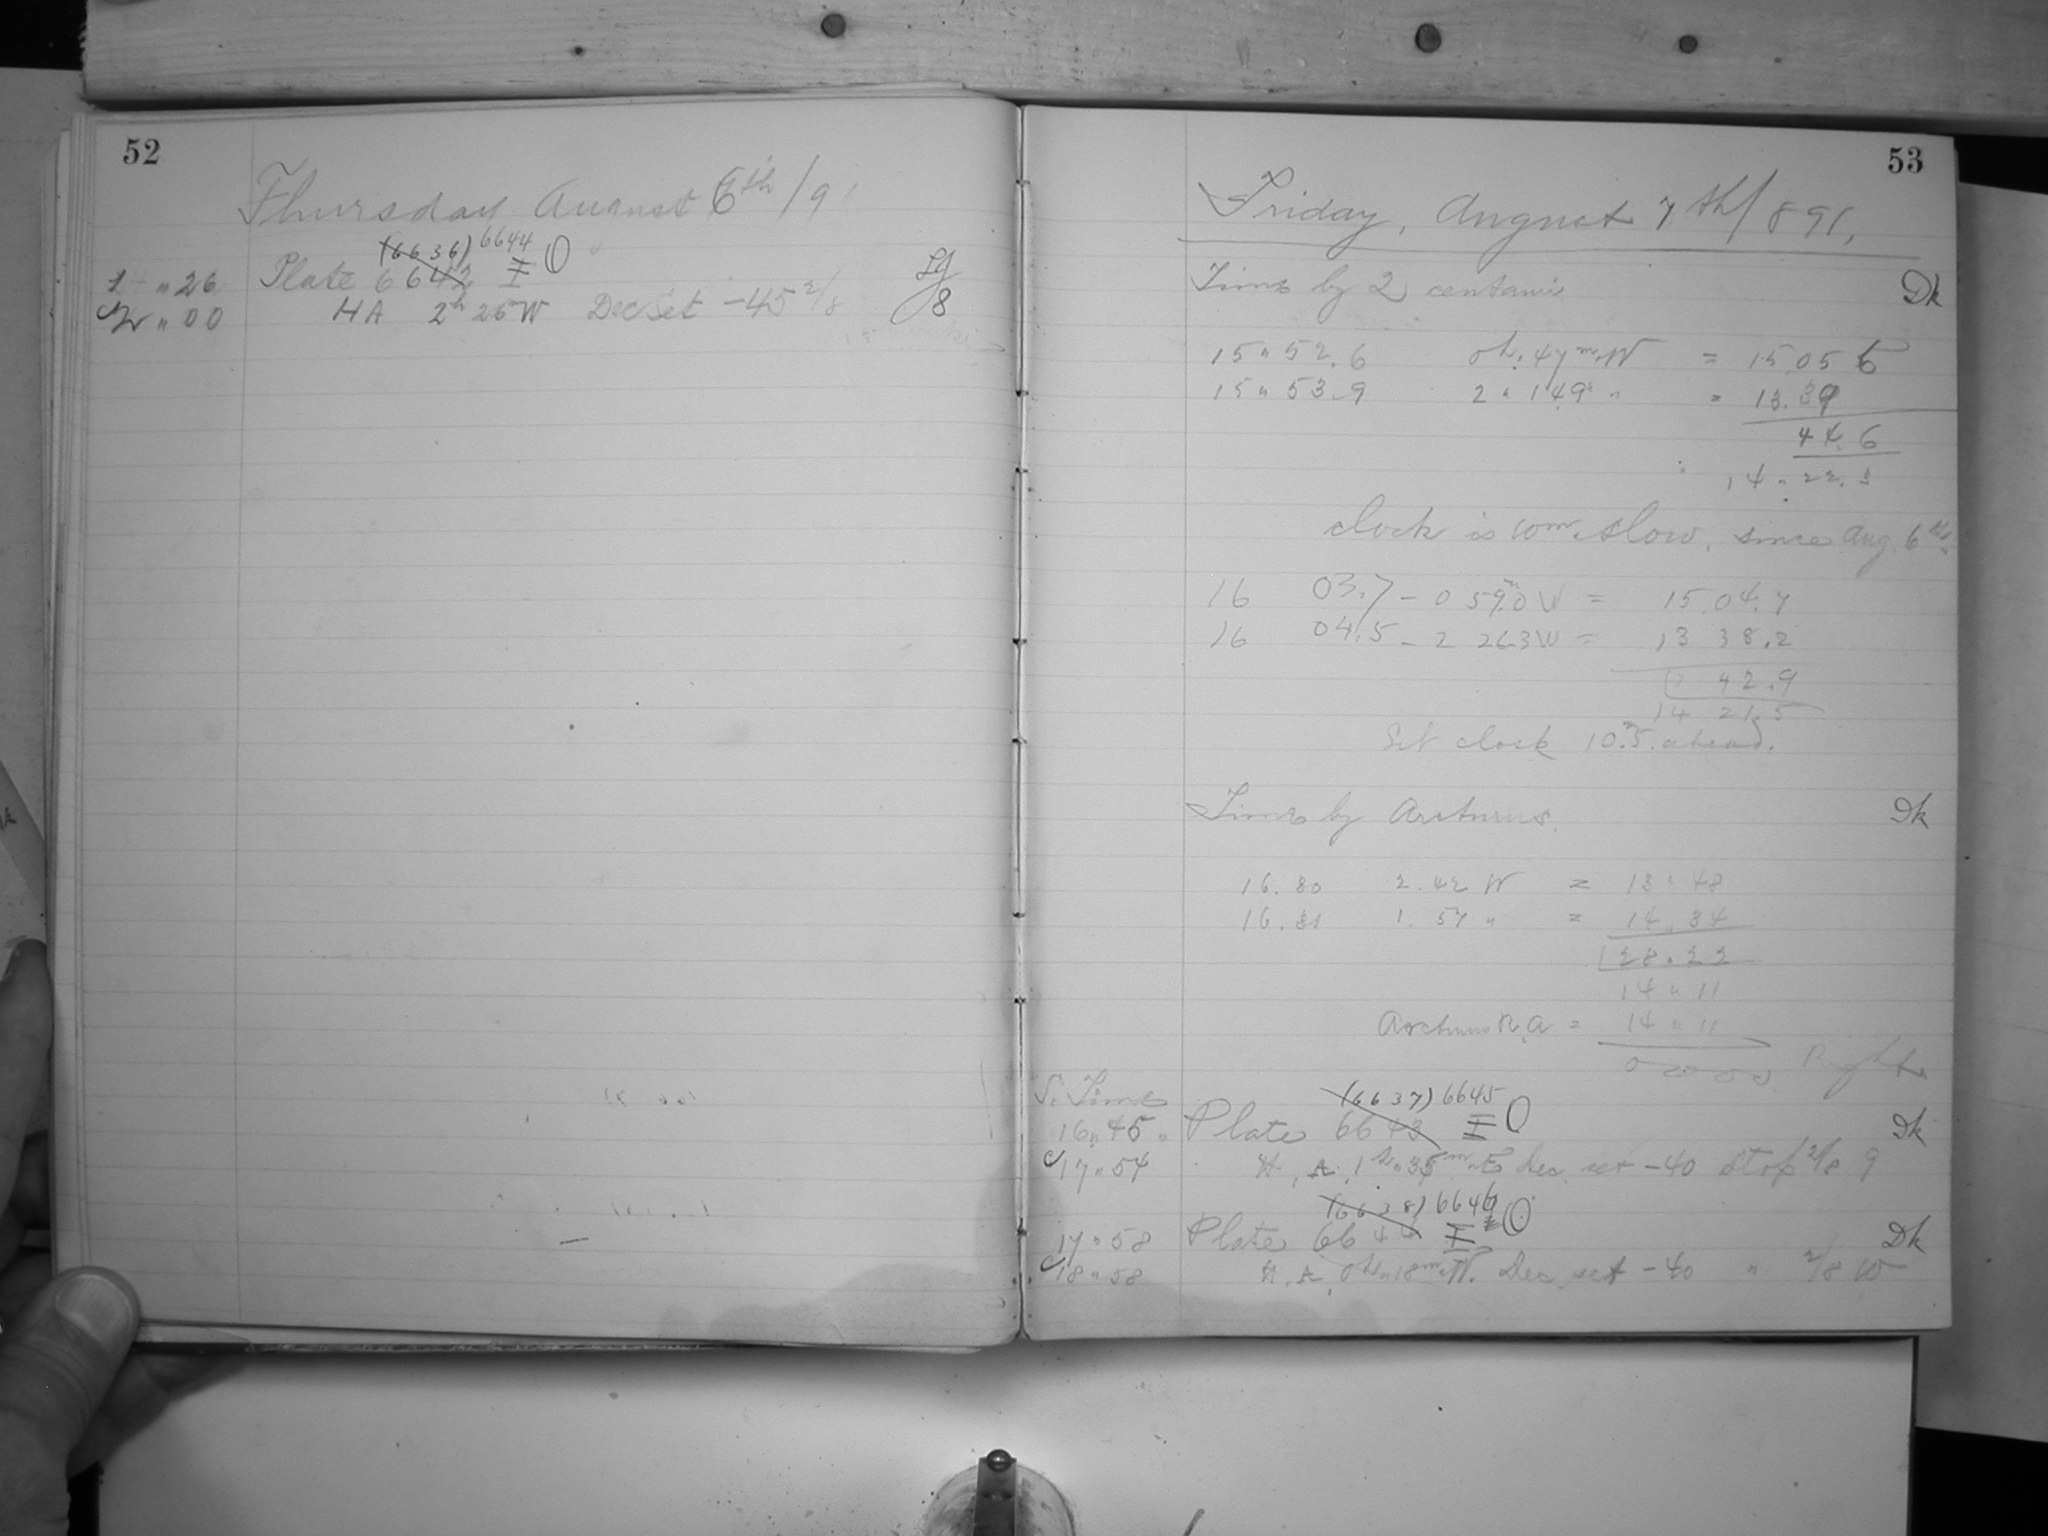 52
Thursday August 6th /91
(6636) 6644
"26 Plate 6642 I O
"00 HA 2h 26m W Dec Set -45 2/8 8
53
Friday, August 7th/891,
Time by 2 centauri Dk
15 " 52.6 0h. 47m. W = 15 05 6
15 " 53.9 2 " 14.9 " = 13.39
44.6
14 " 22.3
clock is 10m. slow. since Aug. 6th.
16 03.7 - 0 59.0 W = 15.04.7
16 04.5 - 2 26.3 W = 13 38.2
42.9
14 21.5
Set clock 10.5m. ahead.
Time by Arcturus. Dk
16.30 2.42 W = 13 " 48
16.31 1.57 " = 14 " 34
28 " 22
14 " 11
Arcturus R.A = 14 " 11
0 00 00 Right
S. Time (6637) 6645
16 " 45 " Plate 6643 I O Dk
17 " 54 H. A. 1h " 35m. E Dec. set -40 Stop 2/8 9
(6638) 6646
17 " 58 Plate 6644 I O Dk
18 " 58 H. A. 0h " 18m. W. Dec set -40 " 2/8 10